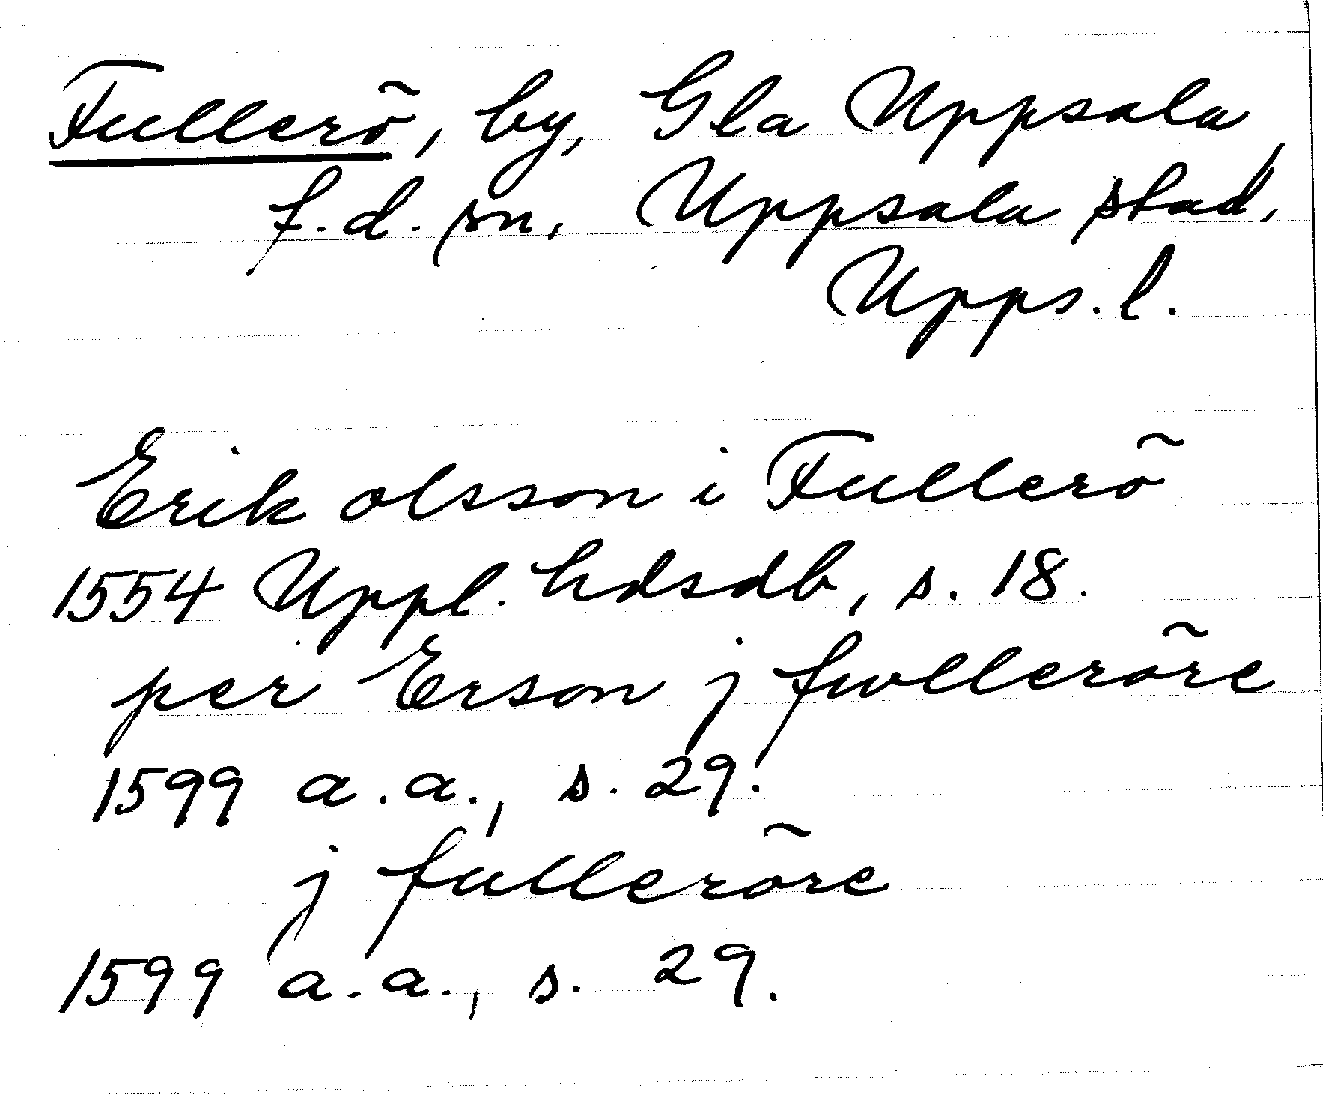 Fullerö, by, Gla Uppsala
f.d. sn, Uppsala stad,
Upps.l.
Erik olsson i Fullerö
1554 Uppl. hdsdb, s. 18.
per Erson j fwlleröre
1599 a.a., s. 29.
j fulleröre
1599 a.a., s. 29.